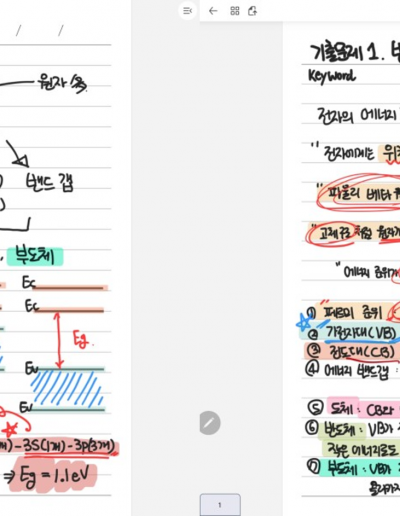 / /
원자 多
밴드갭
부도체
Ec
Ec
Eg.
Ev
Ev
-3S(1개)-3P(3개)
⇒ Eg = 1.1eV
기출문제 1.
Keyword
전자의 에너지
" 전자에게는
"파울리 배타
"고체구조처럼
"에너지 준위
① 페르미 준위
② 가전자대(VB)
③ 전도대(CB)
④ 에너지 밴드갭 :
⑤ 도체 : CB와
⑥ 반도체 : VB가
작은 에너지로도
⑦ 부도체 : VB가
1